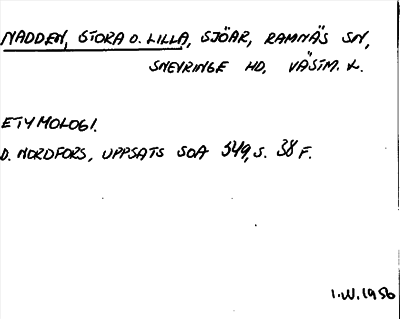 NADDEN, STORA O. LILLA, SJÖAR, RAMNÄS SN,
SNEVRINGE HD, VÄSTM. L.
ETYMOLOGI.
D. NORDFORS, UPPSATS SOA 349, S. 38 F.
I.W. 1956